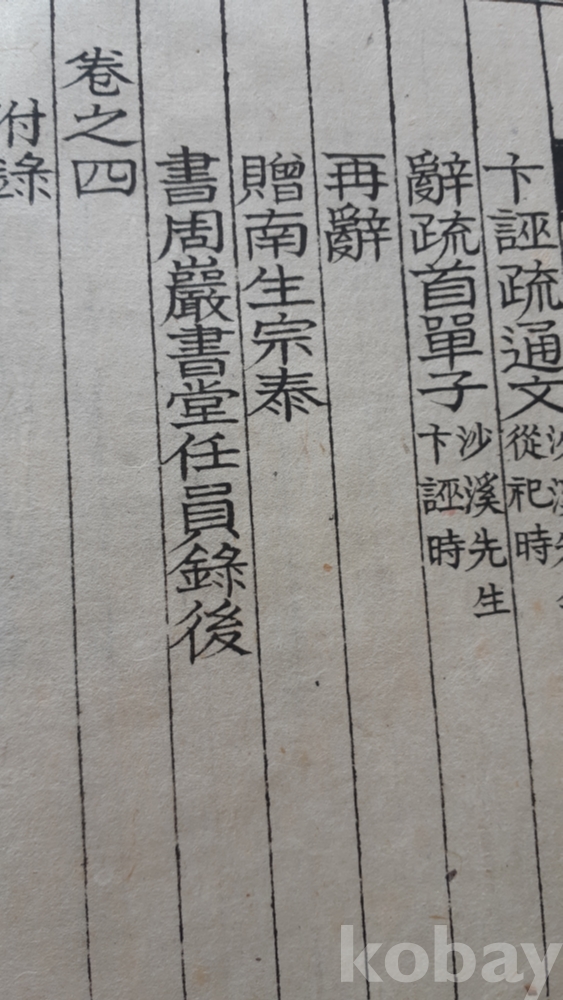 卞誣疏通文 沙溪先生從祀時
辭疏首單子 沙溪先生卞誣時
再辭
贈南生宗泰
書周巖書堂任員錄後
卷之四
附錄
kobay